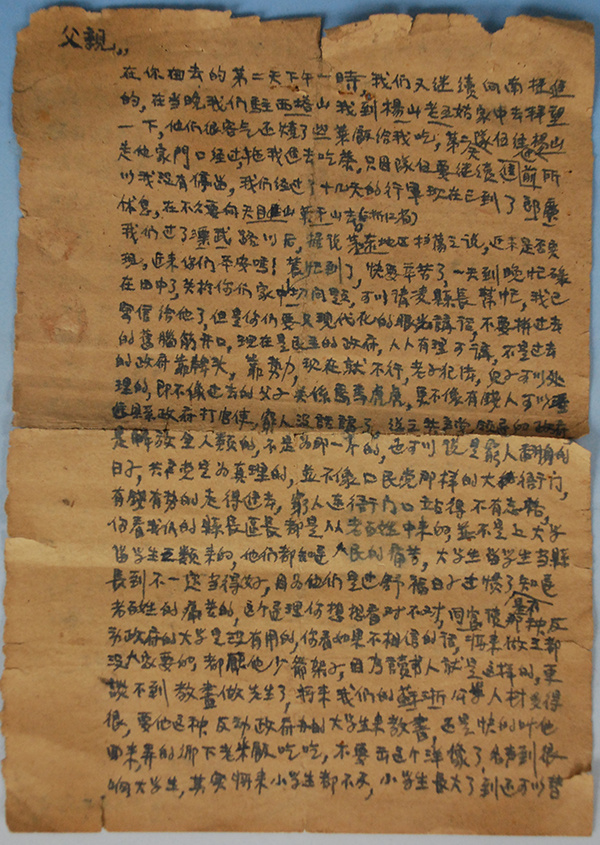 父親,,,
在你回去的第二天下午一時,我们又继续向南挺進
的,在当晚我们駐西塔山我到楊山老五姑家中去拜望
一下,他们很客气还燒了些菜飯给我吃,第二天隊伍往楊山
走他家門口经过,拖我進去吃茶,只因隊伍要继續進前所
以我没有停留,我们经过了十几天的行軍現在已到了郎廣
休息,在不久要向天目山莫干山去
我们过了漂武路以后,據說茅东地区掃荡之说,近来是否实
現,近来你们平安嗎!蓄忙到了,快要辛苦了,一天到晚忙碌
在田中了,关於你们家中切问題,可以請凌縣長幫忙,我已
寄信给他了,但是你们要只現代化的眼光講話,不要拼过去
的舊腦筋开口,現在是民主的政府,人人有理可講,不是过去
的政府靠牌头,靠势力,現在就不行,老子犯法,兒子可以处
理的,即不像过去的父子关係馬馬虎虎,更不像有錢人可以
縣政府打官使,窮人没話講了,说之共產党領导的政府
是解放全人類的,不是为那一界的,也可以说是窮人翻身的
日子,共產党是为真理的,並不像口民党那样的大衙门,
有錢有势的走得進去,窮人連衙门口立站得不有志格,
你看我们的縣長區長都是从老百姓中来的並不是上大学
留学生里頭来的,他们都知道人民的痛苦,大学生留学生当縣
長到不一定当得好,因为他们是过舒福日子过慣了知道
老百姓的痛苦的,这个道理你想想看对不对,同富彼是不那种反
动政府的大学是没有用的,你看如果不相信的話,将来做主都
没人家要的,都願他少爺架子,因为讀書人就是这样的,更
談不到教書做先生了,将来我们的蘇浙公學人材多得
很,要他这种反动政府办的大学生来教書,还是快的叫他
回来弄的鄉下老米飯吃吃,不要丢这个洋樣了,名声到很
响大学生,其实将来小学生都不买,小学生長大了到还可以替